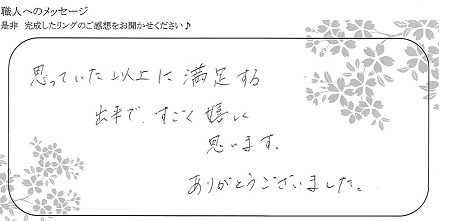 職人へのメッセージ
是非 完成したリングのご感想をお聞かせください♪
思っていた以上に満足する
出来で、すごく嬉しく
思います。
ありがとうございました。